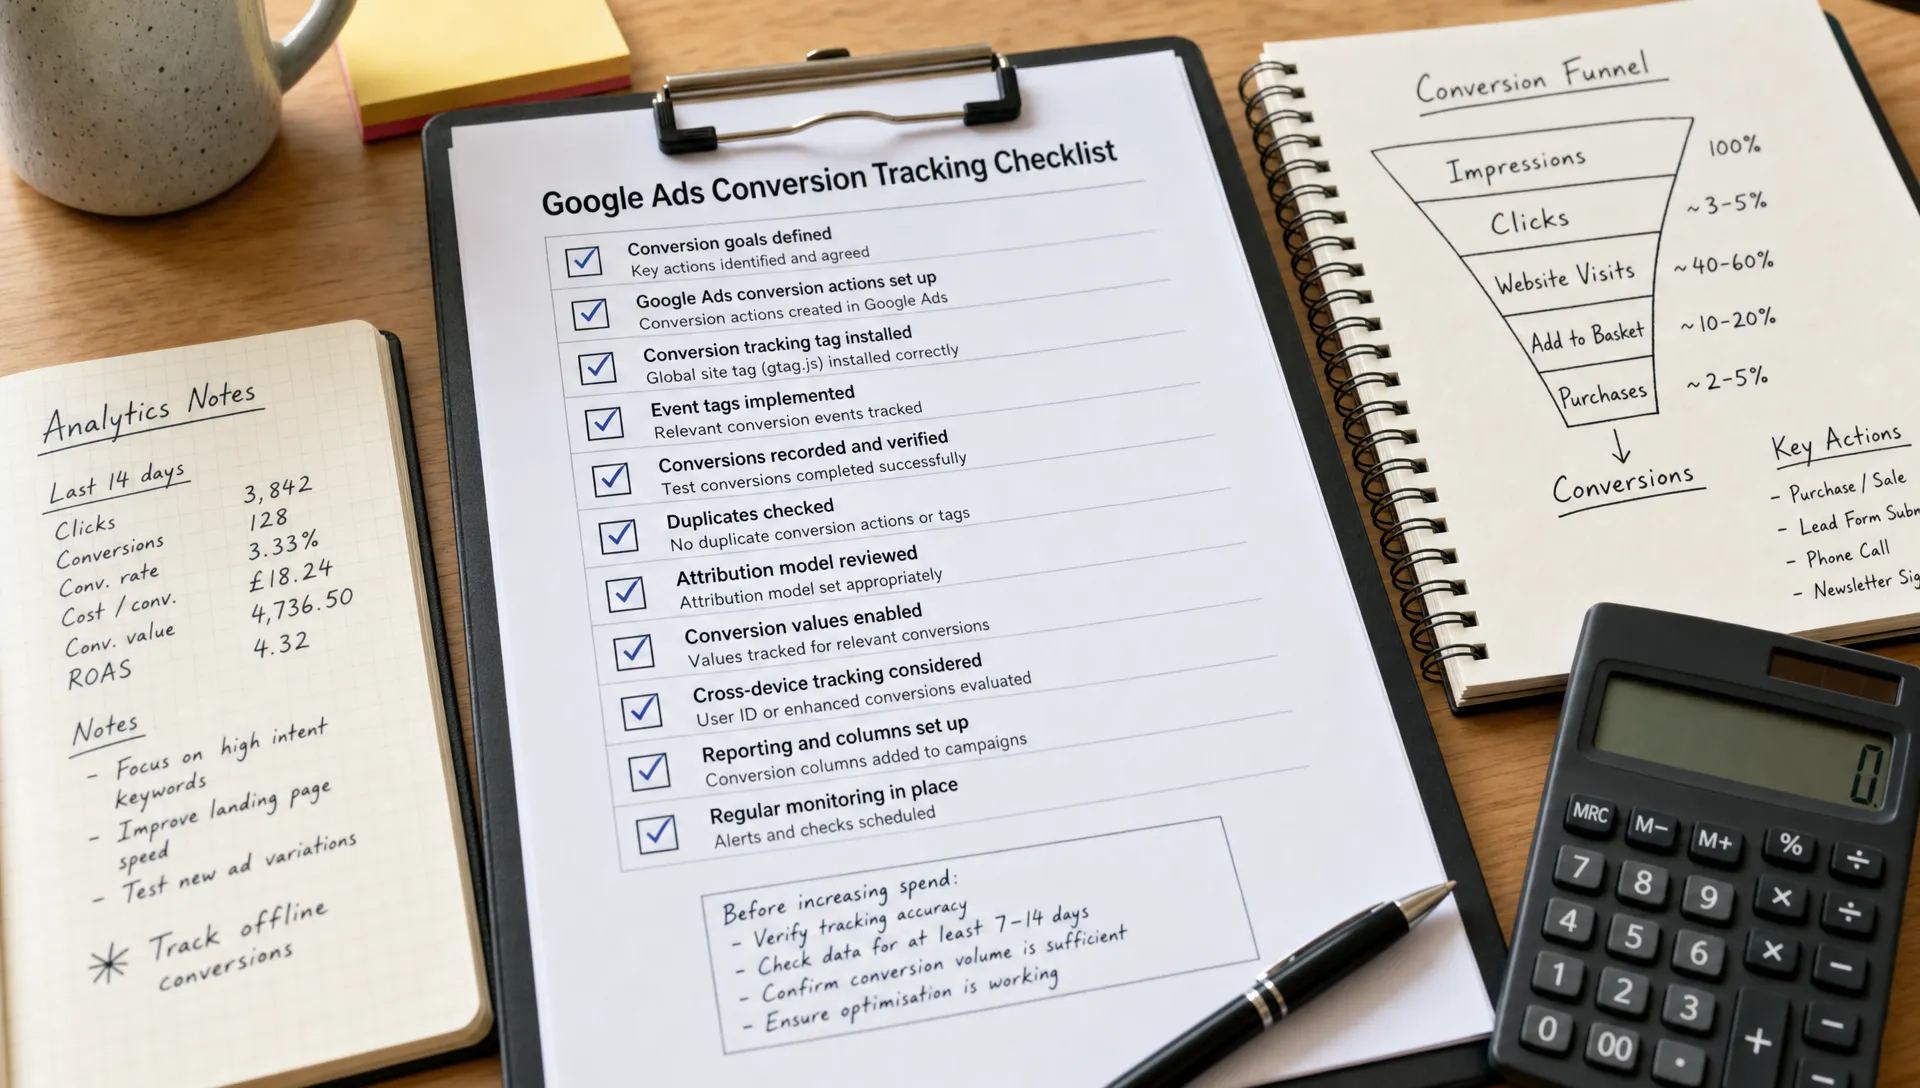 Analytics Notes
Last 14 days
Clicks 3,842
Conversions 128
Conv. rate 3.33%
Cost / conv. £18.24
Conv. value 4,736.50
ROAS 4.32
Notes
- Focus on high intent
keywords
- Improve landing page
speed
- Test new ad variations
✳ Track offline
conversions
Google Ads Conversion Tracking Checklist
Conversion goals defined
Key actions identified and agreed
Google Ads conversion actions set up
Conversion actions created in Google Ads
Conversion tracking tag installed
Global site tag (gtag.js) installed correctly
Event tags implemented
Relevant conversion events tracked
Conversions recorded and verified
Test conversions completed successfully
Duplicates checked
No duplicate conversion actions or tags
Attribution model reviewed
Attribution model set appropriately
Conversion values enabled
Values tracked for relevant conversions
Cross-device tracking considered
User ID or enhanced conversions evaluated
Reporting and columns set up
Conversion columns added to campaigns
Regular monitoring in place
Alerts and checks scheduled
Before increasing spend:
- Verify tracking accuracy
- Check data for at least 7-14 days
- Confirm conversion volume is sufficient
- Ensure optimisation is working
Conversion Funnel
Impressions 100%
Clicks ~3-5%
Website Visits ~40-60%
Add to Basket ~10-20%
Purchases ~2-5%
Conversions
Key Actions
- Purchase / Sale
- Lead Form Subm
- Phone Call
- Newsletter Sig
0.
MRC M− M+ % ÷
7 8 9 × ÷
4 5 6 × −
1 2 3 + −
0 00 . −